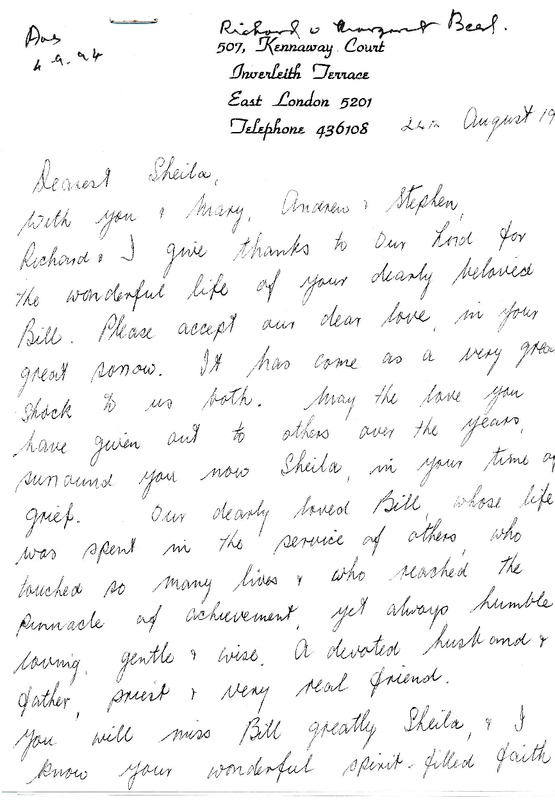 Ans
4.9.94
Richard & Margaret Beal.
507, Kennaway Court
Inverleith Terrace
East London 5201
Telephone 436108
24th August 19
Dearest Sheila,
With you & Mary, Andrew & Stephen,
Richard & I give thanks to Our Lord for
the wonderful life of your dearly beloved
Bill. Please accept our dear love, in your
great sorrow. It has come as a very grea
shock to us both. May the love you
have given out to others over the years,
surround you now Sheila, in your time of
grief. Our dearly loved Bill, whose life
was spent in the service of others, who
touched so many lives & who reached the
pinnacle of achievement, yet always humble
loving, gentle & wise. A devoted husband &
father, priest & very real friend.
You will miss Bill greatly Sheila, & I
know your wonderful spirit-filled faith